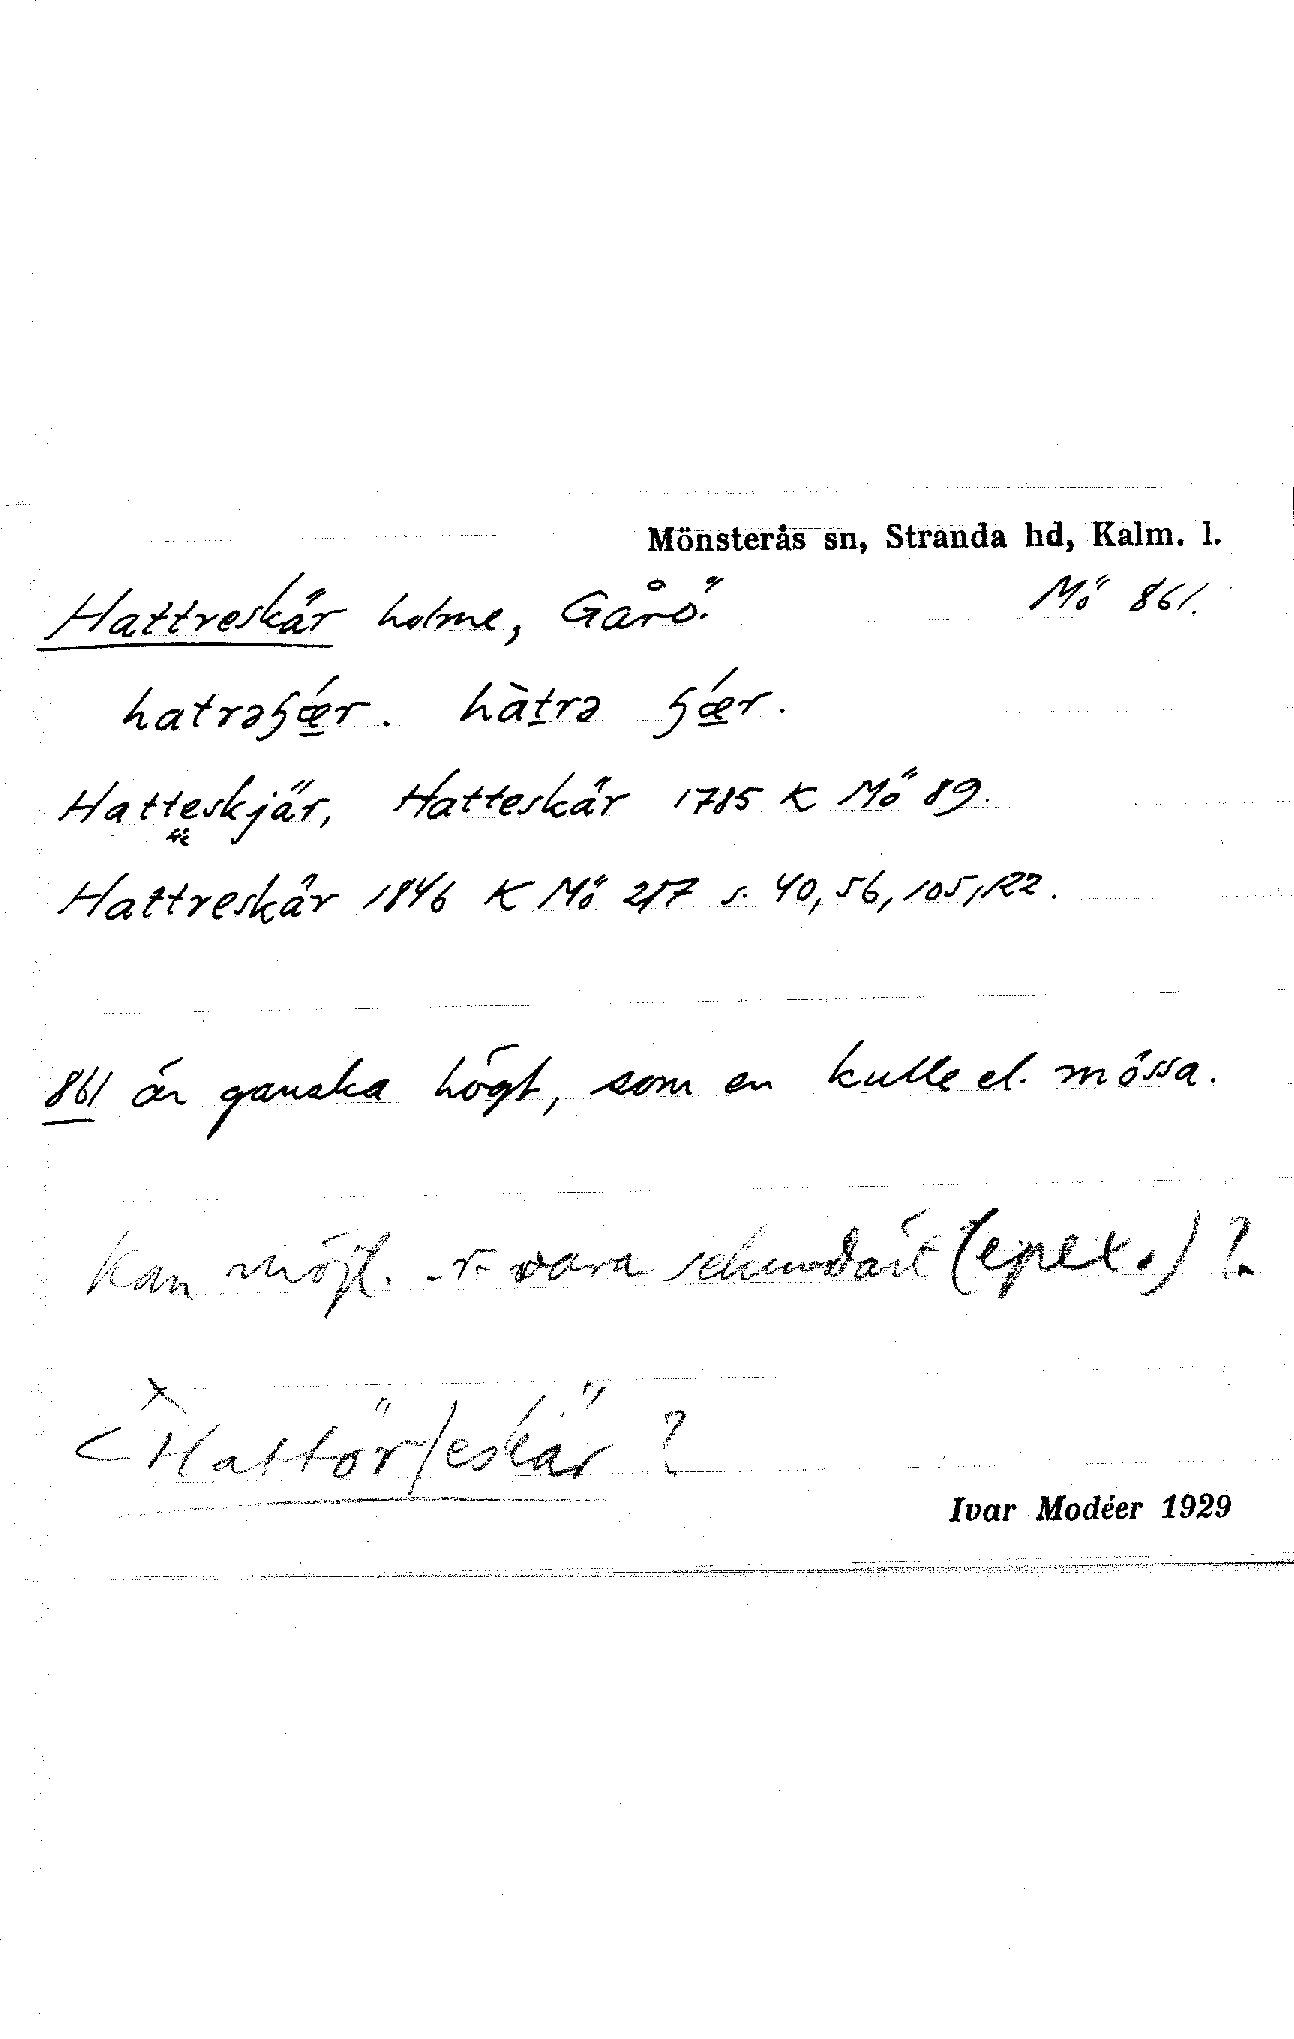 Mönsterås sn, Stranda hd, Kalm. l.
Hattreskär holme, Gårö. Mö 861.
hatrəʂǽr. hàtrə ʂǽr.
Hatteskjär, Hatteskär 1785 K Mö 89.
Hattreskär 1846 K Mö 217 s. 40, 56, 105, 122.
861 är ganska högt, som en kulle el. mössa.
Kan möjl. -r- vara sekundärt (epex.)?
< × Hattör/eskär ?
Ivar Modéer 1929